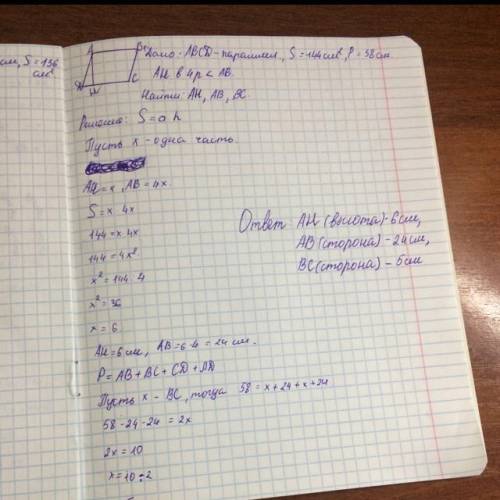 см, S = 136
см²
A B
D H C
Дано: ABCD-параллел., S=144см², P=58см.
AH в 4р < AB.
Найти: AH, AB, BC.
Решение: S = a h
Пусть x - одна часть.
AH = x, AB = 4x.
S = x · 4x
144 = x · 4x
144 = 4x²
x² = 144 : 4
x² = 36
x = 6
AH = 6 см, AB = 6 · 4 = 24 см.
P = AB + BC + CD + AD
Пусть x - BC, тогда 58 = x + 24 + x + 24
58 - 24 - 24 = 2x
2x = 10
x = 10 ÷ 2
Ответ AH (высота) - 6 см,
AB (сторона) - 24 см,
BC (сторона) - 5 см